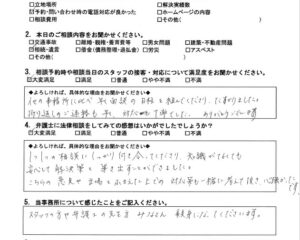 □立地場所 □解決実績数
☑予約・問い合わせ時の電話対応が良かった □ホームページの内容
□相談費用 □その他( )
2. 本日のご相談内容をお聞かせください。
□交通事故 □離婚・親権・養育費等 □男女問題 □建築・不動産問題
□相続・遺言 □借金(債務整理・過払い等) □労災 □アスベスト
□その他( )
3. 相談予約時や相談当日のスタッフの接客・対応について満足度をお聞かせください。
☑大変満足 □満足 □普通 □やや不満 □不満
◆よろしければ、具体的な理由をお聞かせください◆
他の事務所に比べ
折り返しのご連絡も 対応も丁寧でした。ありがたかった
4. 弁護士に法律相談をしてみての感想はいかがでしたでしょうか?
☑大変満足 □満足 □普通 □やや不満 □不満
◆よろしければ、具体的な理由をお聞かせください◆
1つ1つの相談にしっかり付き合ってくださり 知識がなくても
安心して 解決策を 出すことができました。
こちらの 意見や ふまえた上での 対応策も一緒に考えて頂き
です。
5. 当事務所について感じたことをご記入ください。
スタッフの方や弁護士の先生方 みなさん 親身になってくださいます。